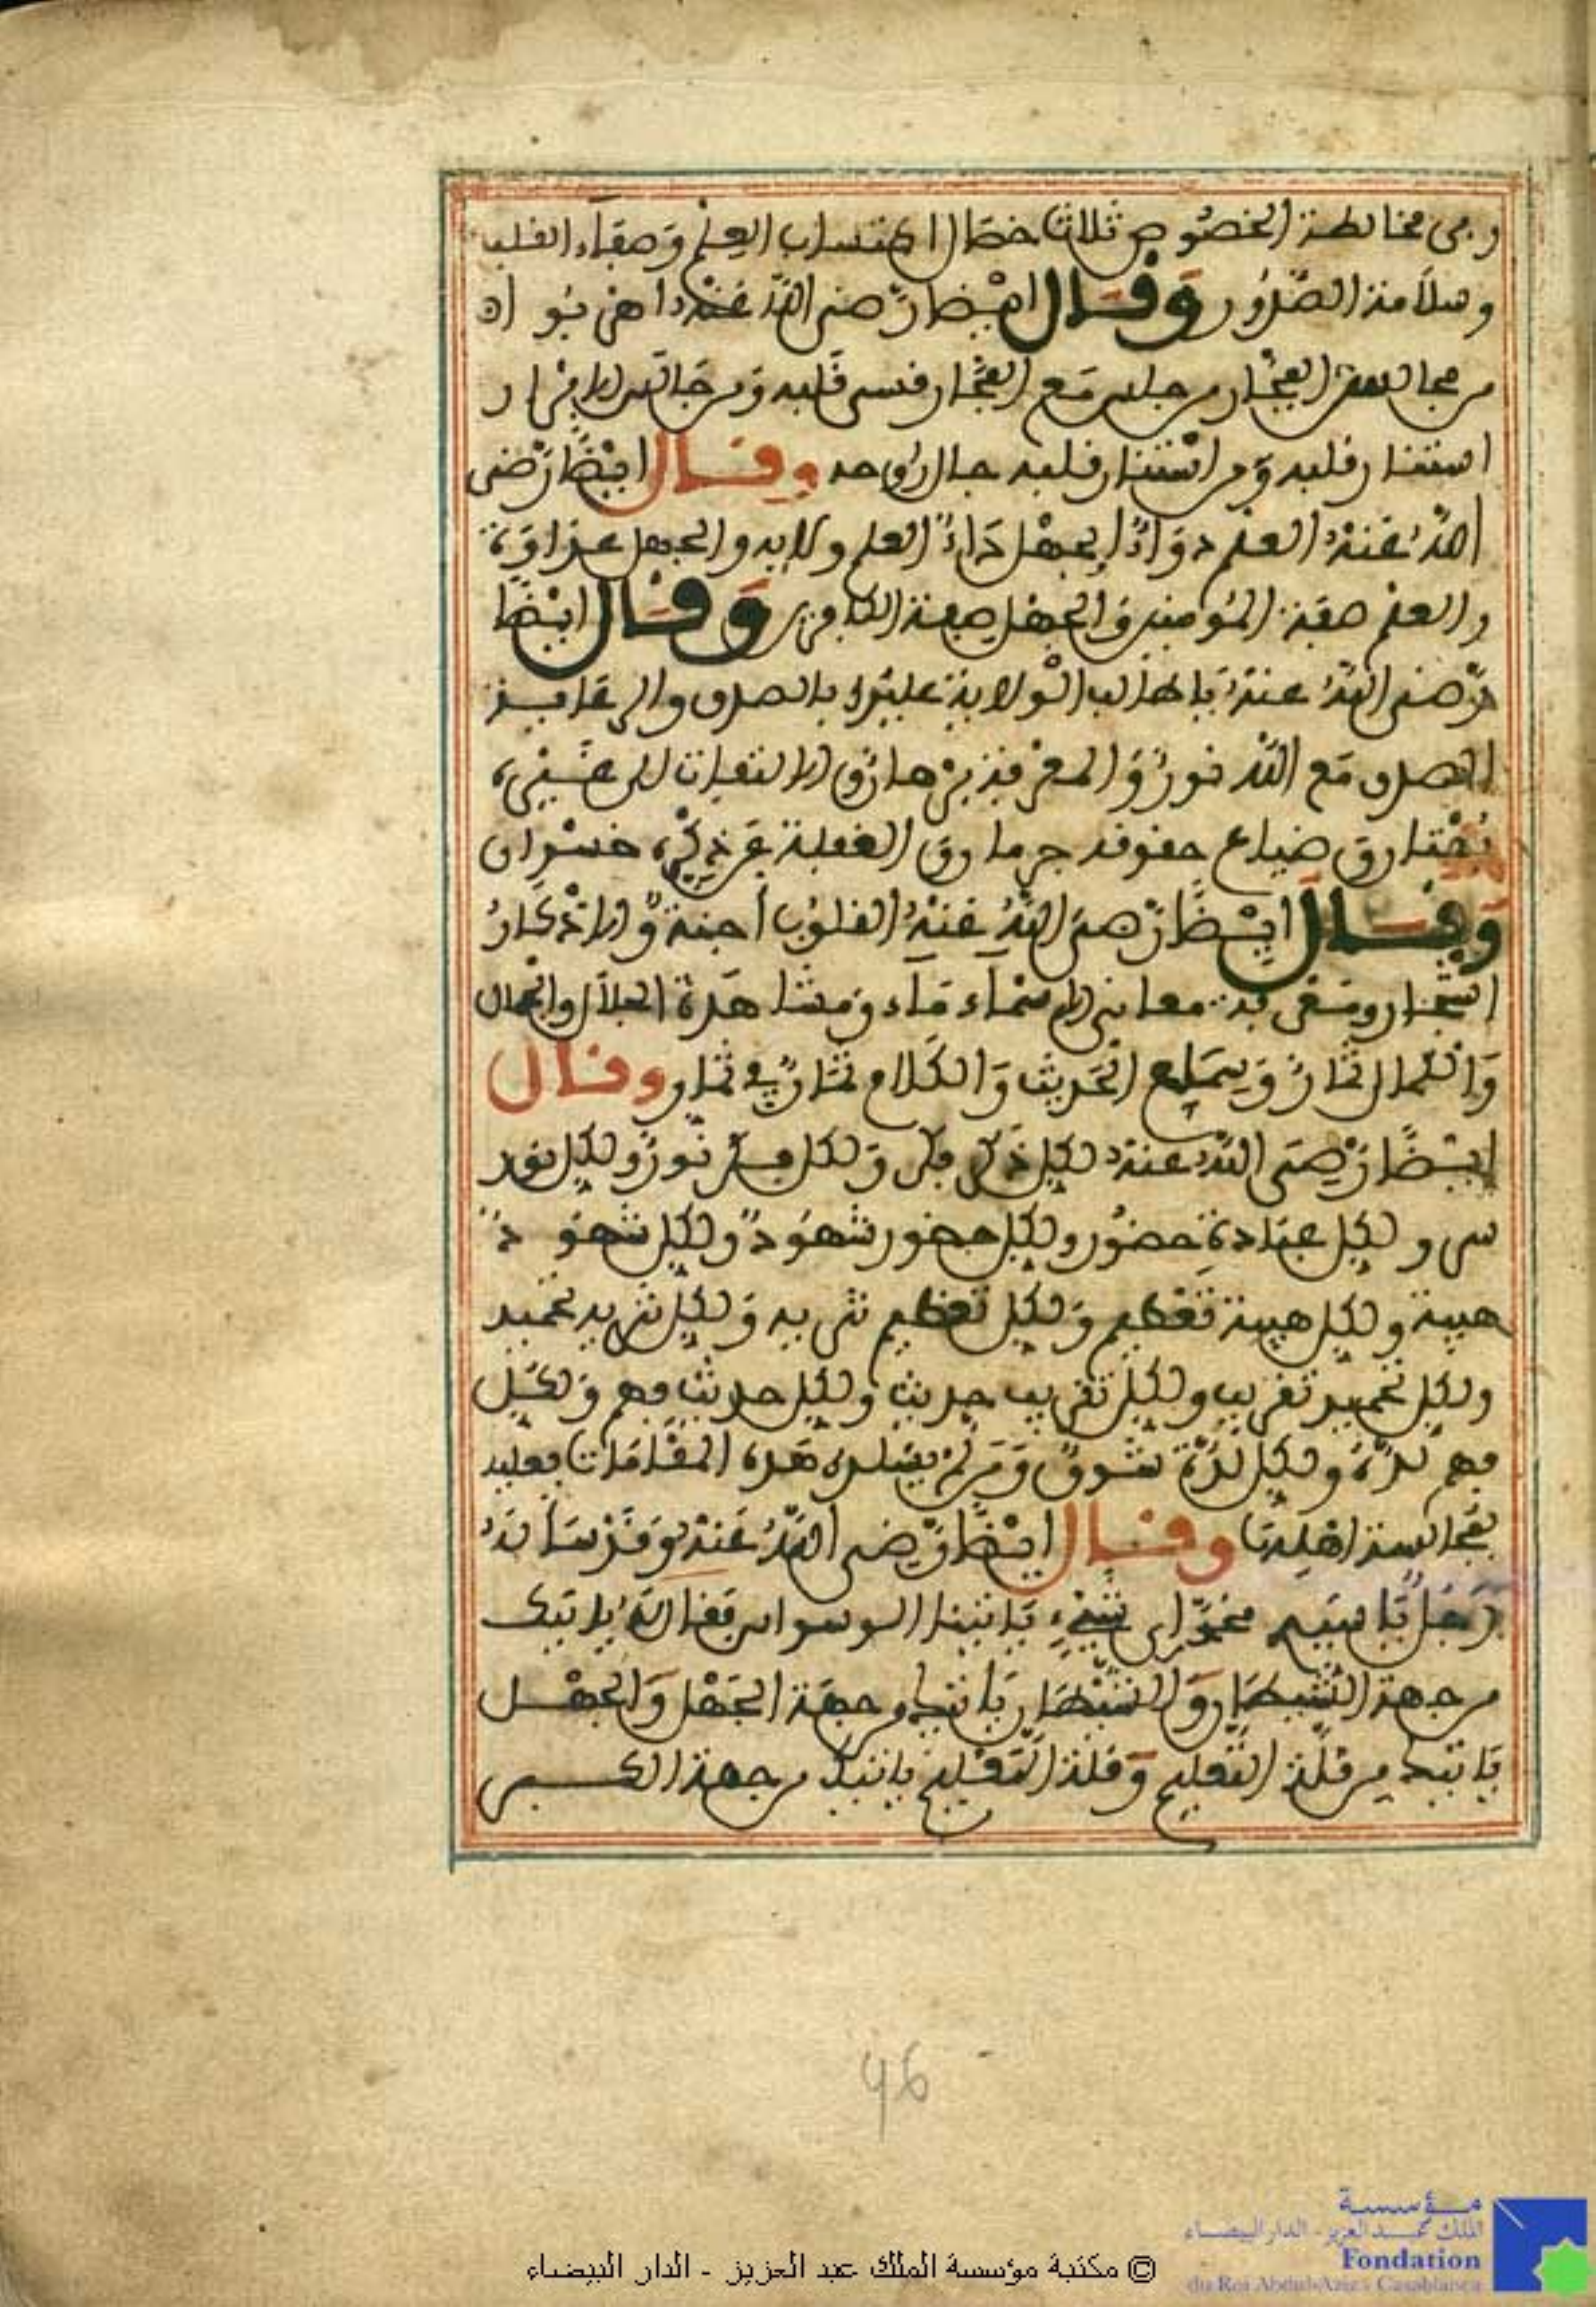 وفي مخالطة الخصوص ثلاث خصال اكتساب العلم وصفاء القلب
وسلامة الصدور وقال ايضا رضي الله عنه اهربوا
من مجالسة الفجار من جلس مع الفجار قسى قلبه ومن جالس الابرار
استنار قلبه ومن استنار قلبه جال روحه وقال ايضا رضي
الله عنه العلم دواء الجهل داء العلم ولاية والجهل عداوة
والعلم صفة المؤمنين والجهل صفة الكافرين وقال ايضا
رضي الله عنه يا طالب الولاية عليك بالصدق
الصدق مع الله نور والمعرفة برهان والالتفات الى غيره
ضياع حقوقه حرمان والغفلة عن ذكره خسران
وقال ايضا رضي الله عنه القلوب اجنة والاذكار
اشجار ومعرفة معاني الاسماء ماء ومشاهدة الجلال والجمال
والكمال ثمار وسماع الحديث والكلام ثمار في ثمار وقال
ايضا رضي الله عنه لكل ذكر فكر ولكل فكر نور ولكل نور
سر ولكل عبادة حضور ولكل حضور شهود ولكل شهود
هيبة ولكل هيبة تعظيم ولكل تعظيم تنزيه ولكل تنزيه تحميد
ولكل تحميد تقريب ولكل تقريب حديث ولكل حديث فهم ولكل
فهم لذة ولكل لذة شوق ومن لم يسلك هذه المقامات فعليه
بمجالسة اهلها وقال ايضا رضي الله عنه وقد ساله
رجل يا سيدي من اي شيء ياتينا الوسواس فقال له ياتيك
من جهة الشيطان والشيطان ياتيك من جهة الجهل والجهل
ياتيك من قلة التعليم وقلة التعليم ياتيك من جهة الكبر
46
© مكتبة مؤسسة الملك عبد العزيز - الدار البيضاء
مؤسسة
الملك عبد العزيز - الدار البيضاء
Fondation
du Roi Abdul-Aziz - Casablanca